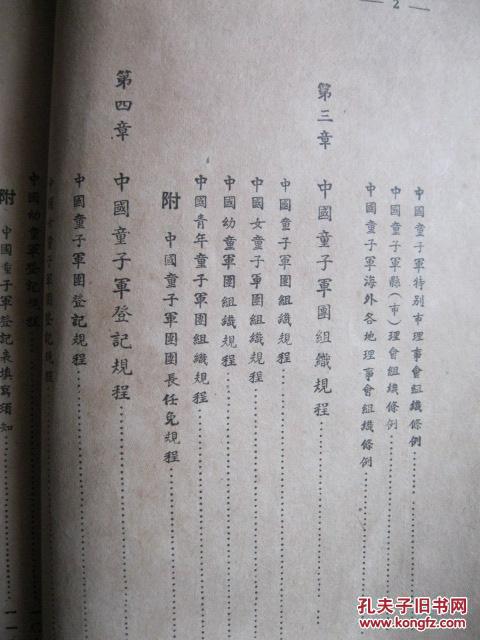 — 2 —
中國童子軍特別市理事會組織條例
中國童子軍縣（市）理會組織條例
中國童子軍海外各地理事會組織條例
第三章 中國童子軍團組織規程
中國童子軍團組織規程
中國女童子軍團組織規程
中國幼童軍團組織規程
中國青年童子軍團組織規程
附 中國童子軍團團長任免規程
第四章 中國童子軍登記規程
中國童子軍團登記規程
中國女童子軍團登記規程
中國幼童軍登記規程
附 中國童子軍登記表填寫須知
孔夫子旧书网
www.kongfz.com